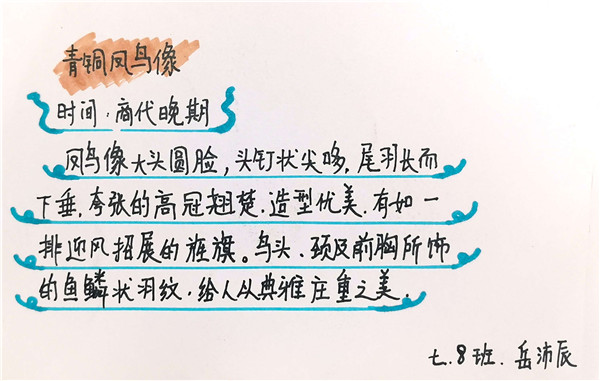 青铜凤鸟像
时间.商代晚期
凤鸟像大头圆脸,头钉状尖哆,尾羽长而
下垂.夸张的高冠翘楚.造型优美.有如一
排迎风招展的旌旗。鸟头、颈及前胸所饰
的鱼鳞状羽纹.给人以典雅庄重之美.
七.8班.岳沛辰